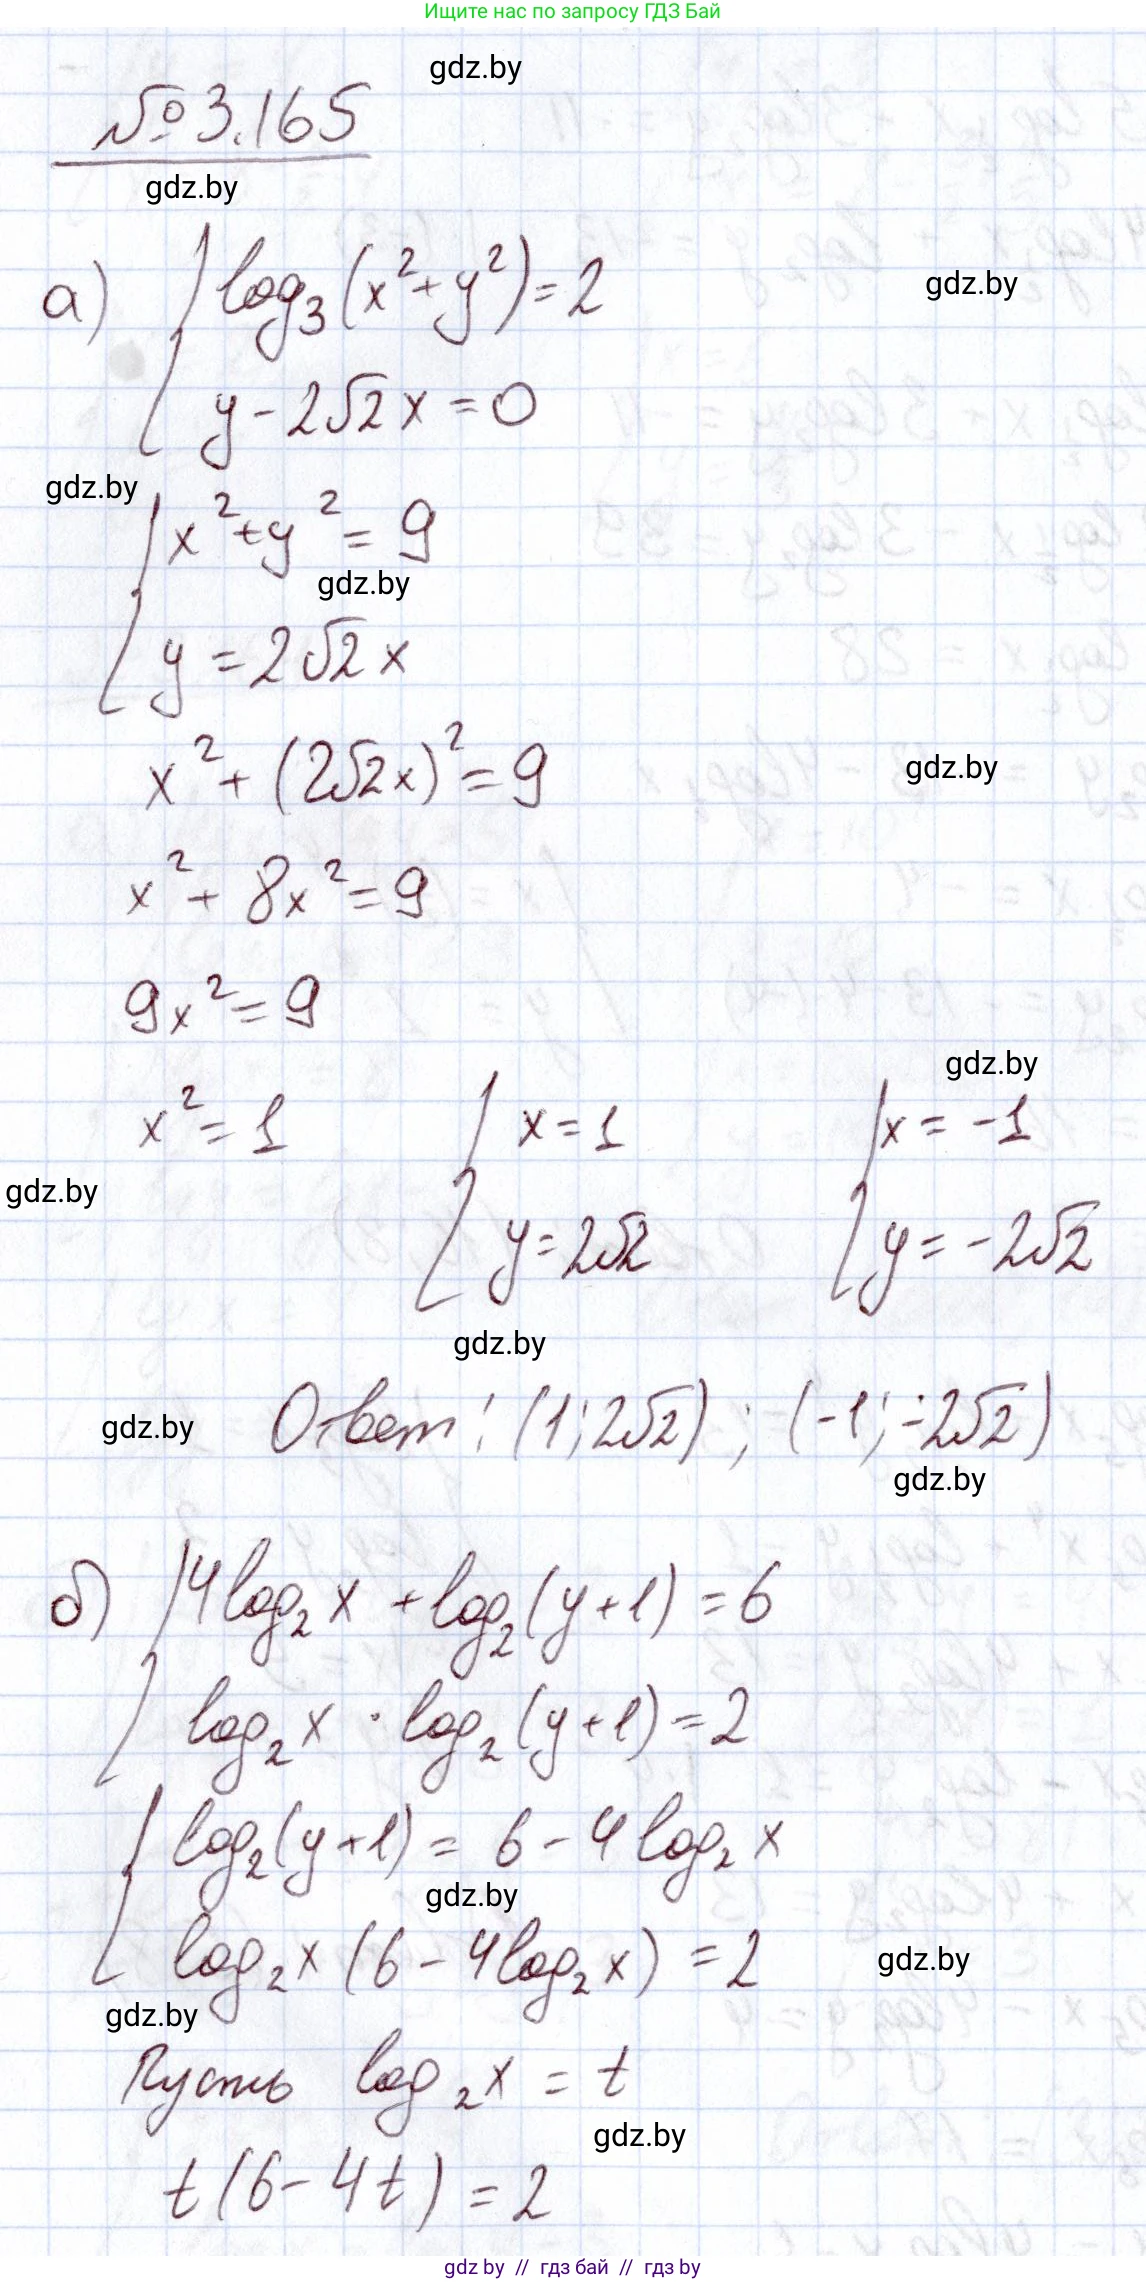 Ищите нас по запросу ГДЗ Бай
gdz.by
№ 3.165
gdz.by
а) { log₃(x²+y²)=2
gdz.by
y - 2√2x = 0
gdz.by
{ x²+y² = 9
gdz.by
y = 2√2x
x² + (2√2x)² = 9
gdz.by
x² + 8x² = 9
9x² = 9
gdz.by
x² = 1 { x = 1 { x = -1
gdz.by
y = 2√2 y = -2√2
gdz.by
Ответ: (1; 2√2); (-1; -2√2)
gdz.by
gdz.by
б) { 4log₂x + log₂(y+1) = 6
log₂x · log₂(y+1) = 2
{ log₂(y+1) = 6 - 4log₂x
gdz.by
log₂x (6 - 4log₂x) = 2
gdz.by
gdz.by
Пусть log₂x = t
gdz.by
t(6 - 4t) = 2
gdz by // гдз бай // гдз by